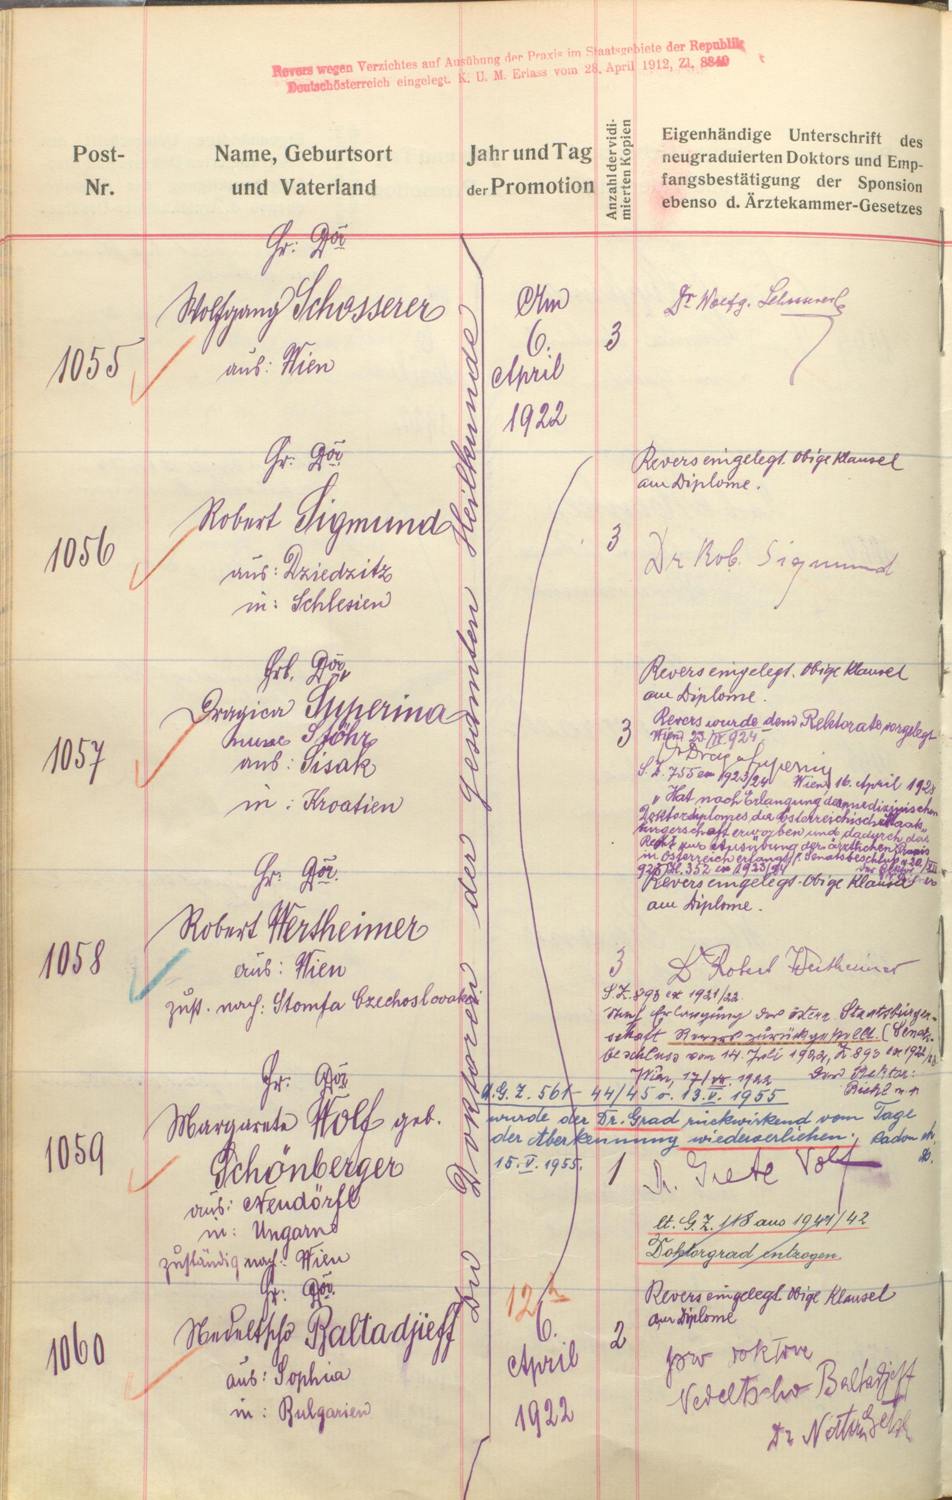 Revers wegen Verzichtes auf Ausübung der Praxis im Staatsgebiete der Republik
Deutschösterreich eingelegt. K. U. M. Erlass vom 28. April 1912, Zl. 8840
Post-
Nr.
Name, Geburtsort
und Vaterland
Jahr und Tag
der Promotion
Anzahl der vidi-
mierten Kopien
Eigenhändige Unterschrift des
neugraduierten Doktors und Emp-
fangsbestätigung der Sponsion
ebenso d. Ärztekammer-Gesetzes
Die Doktoren der gesamten Heilkunde
1055
Hr:
Wolfgang Schosserer
aus: Wien
Am
6.
April
1922
3
Dr Wolfg.
1056
Hr:
Robert Sigmund
aus: Dziedzitz
in: Schlesien
3
Revers eingelegt. Obige Klausel
am Diplome.
Dr Rob. Sigmund
1057
Dragica Superina
aus: Sisak
in: Kroatien
3
Revers eingelegt. Obige Klausel
am Diplome.
Revers wurde dem Rektorate vorgelegt
Wien 23/IV 924
S. Z. 755 ex 1923/24 Wien, 16. April 1928
"Hat nach Erlangung des medizinischen
Doktordiplomes die österreichische Staats-
bürgerschaft erworben und dadurch das
Recht zur Ausübung der ärztlichen Praxis
in Österreich erlangt." Senatsbeschluß v. 20.
352 ex 1923/24
1058
Hr:
Robert Wertheimer
aus: Wien
zust. nach: Stomfa Czechoslovakei
3
Revers eingelegt. Obige Klausel
am Diplome.
Dr Robert Wertheimer
S. Z. 893 ex 1921/22
Nach Erlangung der österr. Staatsbürger-
schaft Revers zurückgestellt. (Senats-
beschluss vom 14. Juli 1922, Z 893 ex 1921/22
Wien, 17/VII. 1922 Der Rektor:
1059
Hr:
Margarete Wolf geb.
Schönberger
aus: Nendörfl
in: Ungarn
zuständig nach: Wien
G. Z. 561- 44/45 v. 13. V. 1955
wurde der Dr. Grad rückwirkend vom Tage
der Aberkennung wiederverliehen.
15. V. 1955.
1
Dr. Grete Wolf
lt. G. Z. 118 aus 1941/42
Doktorgrad entzogen.
1060
Hr:
Nedeltscho Baltadjieff
aus: Sophia
in: Bulgarien
12 h
6.
April
1922
2
Revers eingelegt. Obige Klausel
am Diplome
Nedeltscho Baltadjieff